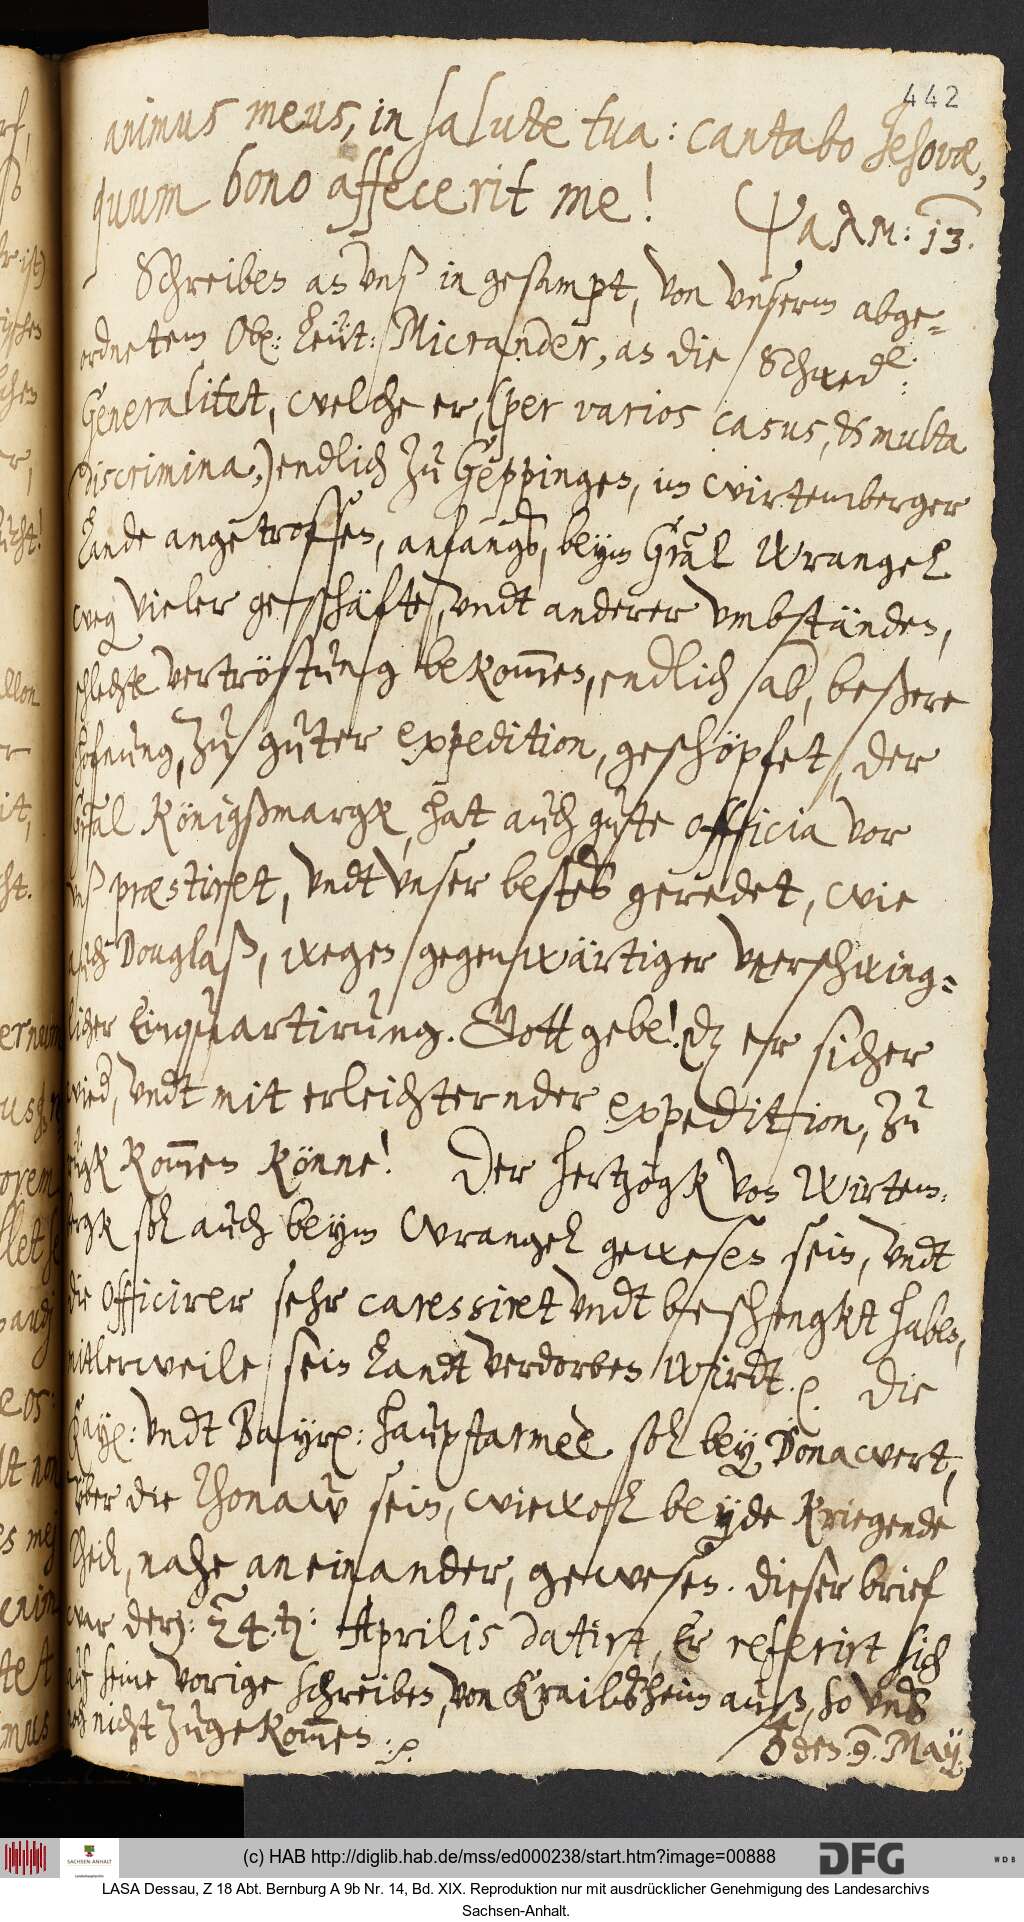 442
animus meus, in salute tua: cantabo Jehovæ,
quum bono affecerit me! Psalm: 13.
Schreiben an unß in gesampt, von unserm abge-
ordnetem Ob: Leüt: Micrander, an die Schwed:
Generalitet, welche er, (per varios casus, & multa
discrimina,) endlich zu Geppingen, im Wirtemberger
Lande angetroffen, anfangs, beym Gräl Wrangel
weg vieler geschäfte, undt anderer umbständen,
schlechte vertröstung bekom̅en, endlich sab, beßere
hofnung, zu guter expedition, geschöpfet, der
Gräl Königßmargk, hat auch gute officia vor
unß præstiret, undt unser bestes geredet, wie
auch Douglaß, wegen gegenwärtiger unerschwing-
licher Einquartirung. Gott gebe! dz er sicher
wied, undt mit erleichternder expedition, zu
rügk kom̅en könne! Der hertzogk von Wirtem-
bergk sol auch beym Wrangel gewesen sein, undt
die Officirer sehr caressiret undt beschengkt haben,
mitlerweile sein Landt verdorben wirdt. Die
Kay: undt Bayr: hauptarmee sol bey Donawert,
über die Thonaw sein, wiewol beyde kriegende
theil, nahe an einander, gewesen. dieser brief
war den: 24.ten: Aprilis datirt, Er referirt sich
auf seine vorige schreiben, von Krailsheim auß, so uns
noch nicht zugekom̅en.
den 9. May
(c) HAB http://diglib.hab.de/mss/ed000238/start.htm?image=00888
SACHSEN-ANHALT
DFG
WDB
LASA Dessau, Z 18 Abt. Bernburg A 9b Nr. 14, Bd. XIX. Reproduktion nur mit ausdrücklicher Genehmigung des Landesarchivs
Sachsen-Anhalt.